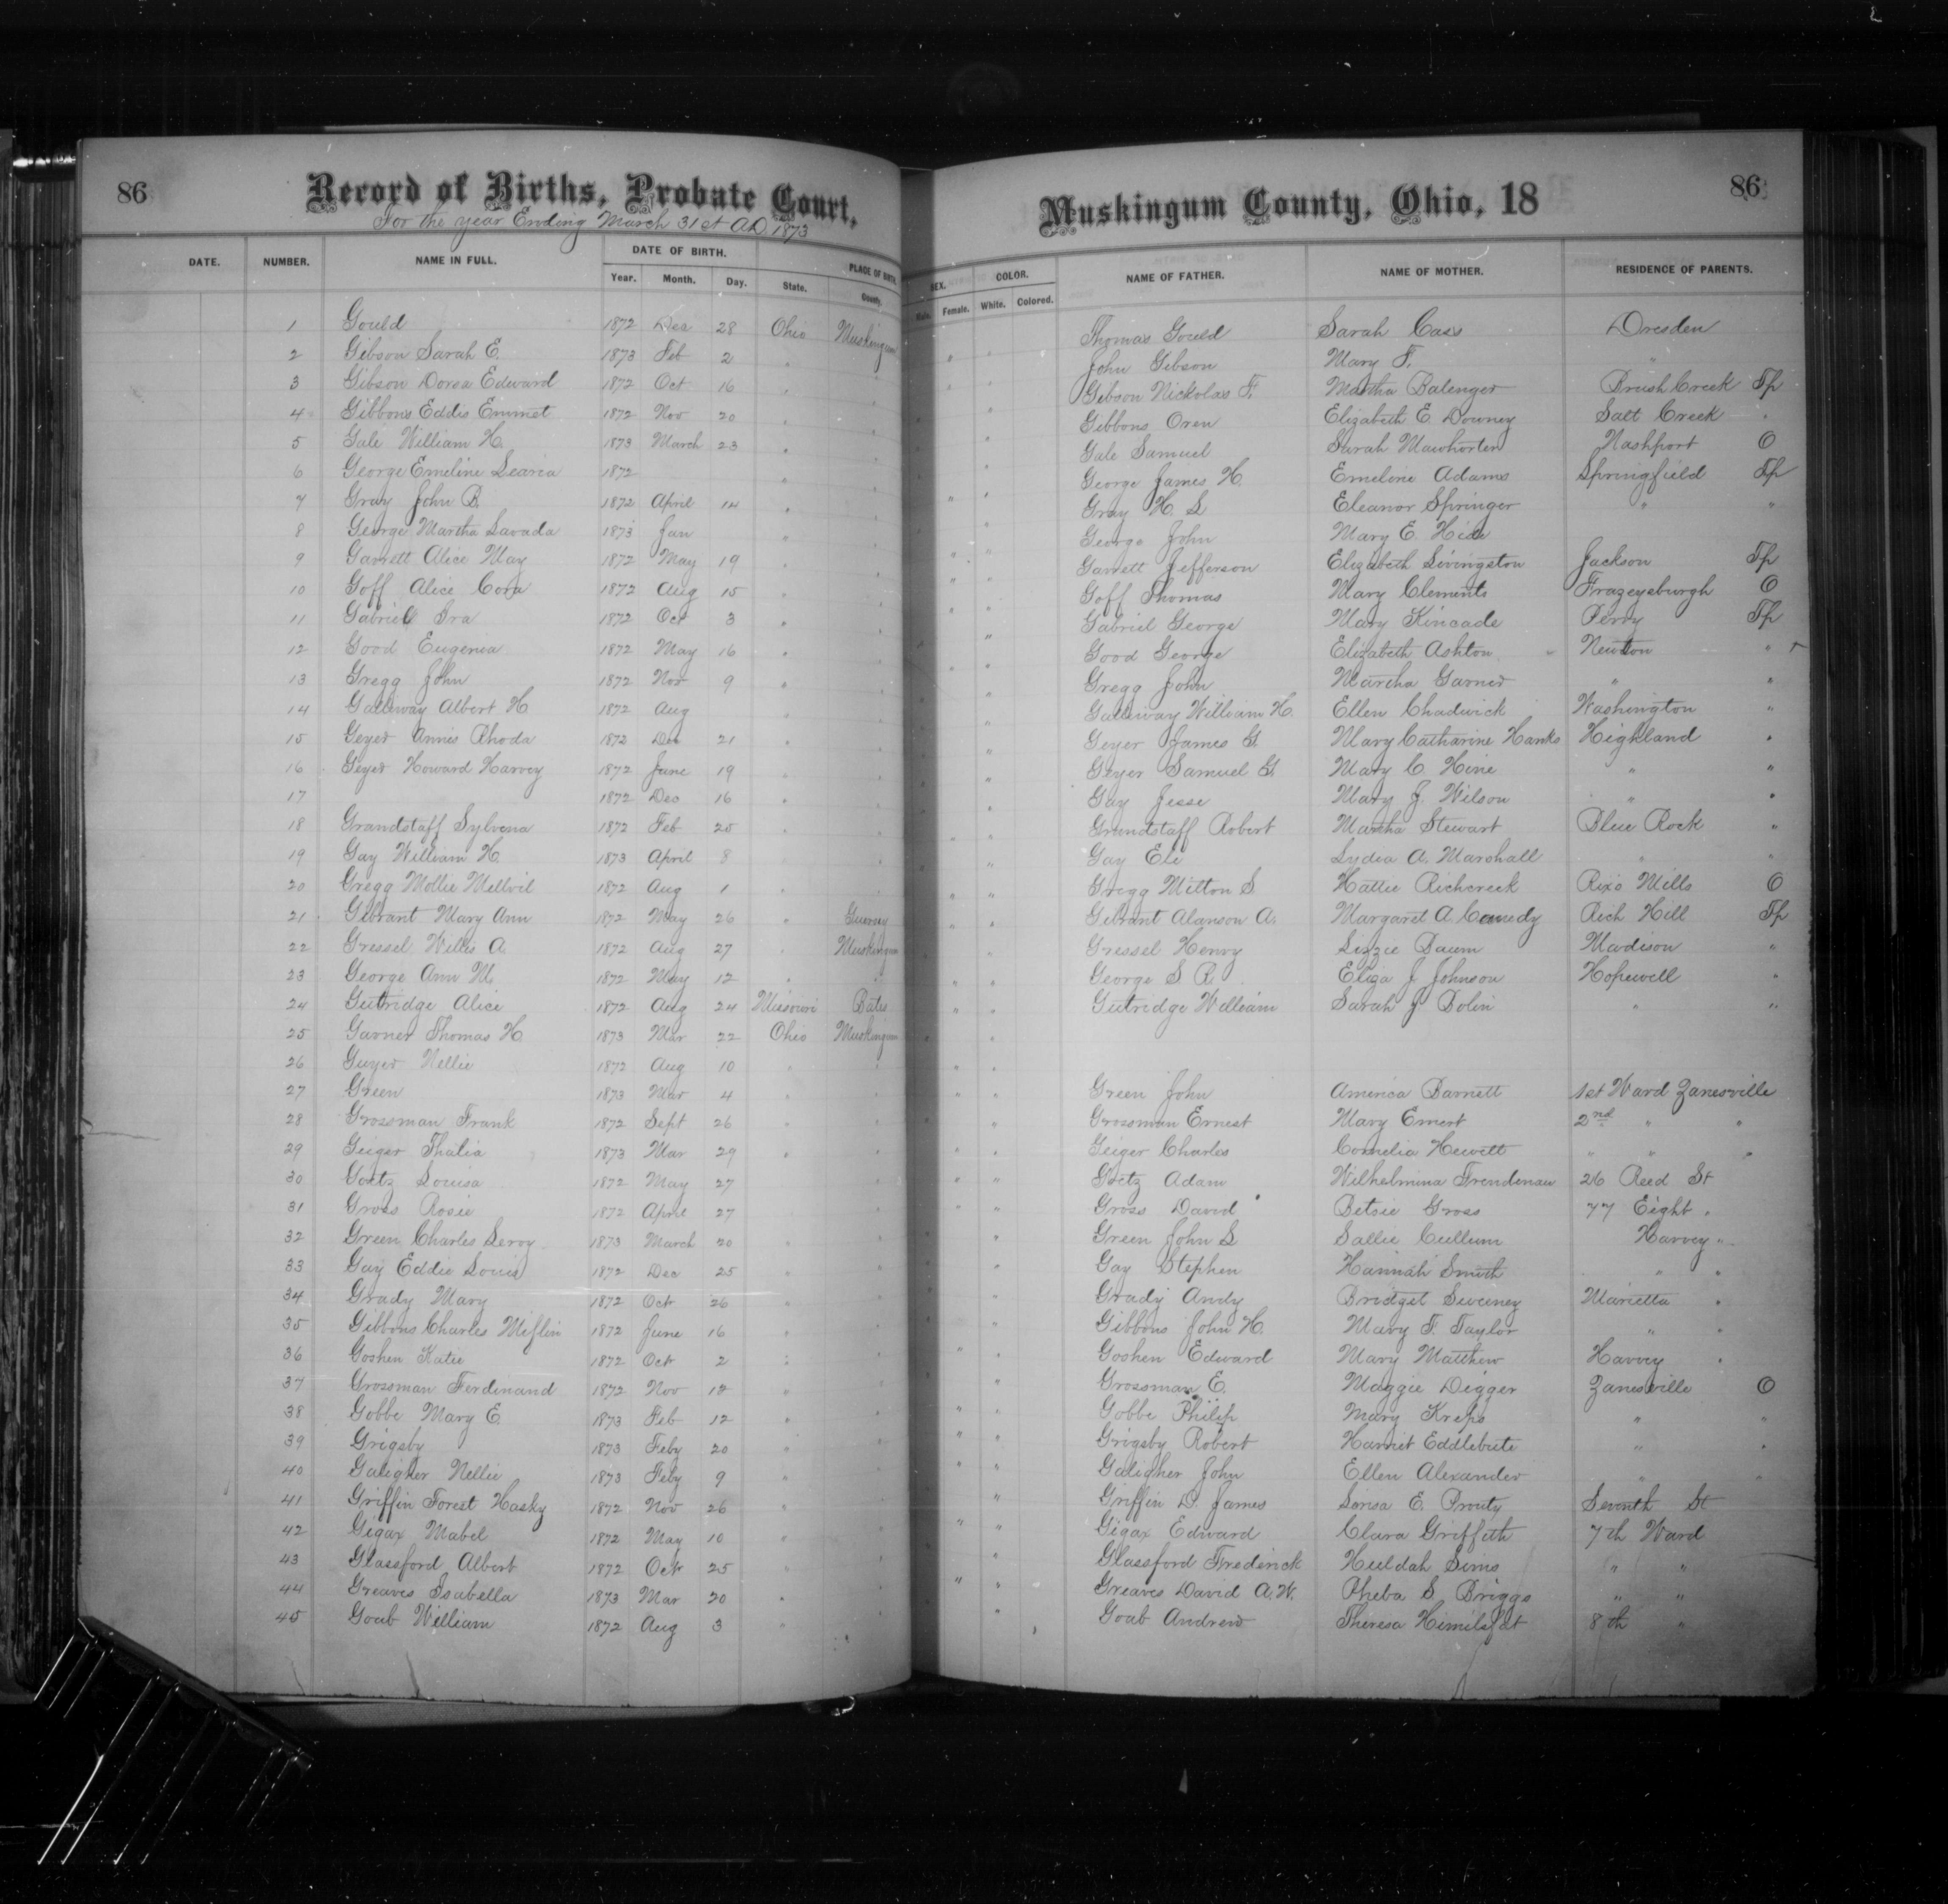 86 Record of Births, Probate Court, Muskingum County, Ohio, 18 86
For the year Ending March 31st A.D. 1873
DATE. NUMBER. NAME IN FULL. DATE OF BIRTH. PLACE OF BIRTH SEX. COLOR. NAME OF FATHER. NAME OF MOTHER. RESIDENCE OF PARENTS.
Year. Month. Day. State. County. Male. Female. White. Colored.
1 Gould 1872 Dec 28 Ohio Muskingum Thomas Gould Sarah Cass Dresden
2 Gibson Sarah E. 1873 Feb 2 " " " " John Gibson Mary F. "
3 Gibson Dorsa Edward 1872 Oct 16 " " " " Gibson Nickolas F. Martha Balenger Brush Creek Tp
4 Gibbons Eddis Emmet 1872 Nov 20 " " " " Gibbons Oren Elizabeth E. Downey Salt Creek "
5 Gale William H. 1873 March 23 " " " " Gale Samuel Sarah Mawhorter Nashport O
6 George Emeline Learia 1872 " " " " George James H. Emeline Adams Springfield Tp
7 Gray John B. 1872 April 14 " " " " Gray H. L Eleanor Springer " "
8 George Martha Lavada 1873 Jan " " " " George John Mary E. Hide
9 Garrett Alice May 1872 May 19 " " " " Garrett Jefferson Elizabeth Livingston Jackson Tp
10 Goff Alice Cora 1872 Aug 15 " " " " Goff Thomas Mary Clements Frazeysburgh O
11 Gabriel Ira 1872 Oct 3 " " " " Gabriel George Mary Kincade Perry Tp
12 Good Eugenia 1872 May 16 " " " " Good George Elizabeth Ashton Newton "
13 Gregg John 1872 Nov 9 " " " " Gregg John Martha Garner " "
14 Galliway Albert H. 1872 Aug " " " " Galliway William H. Ellen Chadwick Washington "
15 Geyer Annis Rhoda 1872 Dec 21 " " " " Geyer James G. Mary Catharine Hanks Highland "
16 Geyer Howard Harvey 1872 June 19 " " " " Geyer Samuel G. Mary C. Hine " "
17 1872 Dec 16 " " " " Gay Jesse Mary J. Wilson " "
18 Grandstaff Sylvena 1872 Feb 25 " " " " Grandstaff Robert Martha Stewart Blue Rock "
19 Gay William H. 1873 April 8 " " " " Gay Eli Lydia A. Marshall " "
20 Gregg Mollie Mellvil 1872 Aug 1 " " " " Gregg Milton S Hattie Richcreek Rixs Mills O
21 Gebrant Mary Ann 1872 May 26 " Guernsey " " Gebrant Alanson A. Margaret A. Comedy Rich Hill Tp
22 Gressel Willis A. 1872 Aug 27 " Muskingum " " Gressel Henry Lizzie Baum Madison "
23 George Ann M. 1872 May 12 " " " " George S. R. Eliza J. Johnson Hopewell "
24 Gutridge Alice 1872 Aug 24 Missouri Bates " " Gutridge William Sarah J. Bolin " "
25 Garner Thomas H. 1873 Mar 22 Ohio Muskingum " "
26 Guyer Nellie 1872 Aug 10 " " " "
27 Green 1873 Mar 4 " " " " Green John America Barnett 1st Ward Zanesville
28 Grossman Frank 1872 Sept 26 " " " " Grossman Ernest Mary Emert 2nd " "
29 Geiger Thalia 1873 Mar 29 " " " " Geiger Charles Cornelia Hewett " " "
30 Goetz Louisa 1872 May 27 " " " " Goetz Adam Wilhelmina Frendenau 26 Reed St
31 Gross Rosie 1872 April 27 " " " " Gross David Betsie Gross 77 Eight "
32 Green Charles Leroy 1873 March 20 " " " " Green John L Sallie Cullum Harvey "
33 Gay Eddie Louis 1872 Dec 25 " " " " Gay Stephen Hannah Smith " "
34 Grady Mary 1872 Oct 26 " " " " Grady Andy Bridget Sweeney Marietta "
35 Gibbons Charles Miflin 1872 June 16 " " " " Gibbons John H. Mary F. Taylor " "
36 Goshen Katie 1872 Oct 2 " " " " Goshen Edward Mary Matthew Harvey "
37 Grossman Ferdinand 1872 Nov 12 " " " " Grossman E. Maggie Digger Zanesville O
38 Gobbe Mary E 1873 Feb 12 " " " " Gobbe Philip Mary Kreps " "
39 Grigsby 1873 Feby 20 " " " " Grigsby Robert Harriet Eddlebute " "
40 Galigher Nellie 1873 Feby 9 " " " " Galigher John Ellen Alexander " "
41 Griffin Forest Hasky 1872 Nov 26 " " " " Griffin D. James Lorisa E. Prouty Seventh St
42 Gigax Mabel 1872 May 10 " " " " Gigax Edward Clara Griffith 7th Ward
43 Glassford Albert 1872 Oct 25 " " " " Glassford Frederick Huldah Sims " "
44 Greaves Isabella 1873 Mar 20 " " " " Greaves David A. W. Pheba S. Briggs " "
45 Goab William 1872 Aug 3 " " " " Goab Andrew Theresa 8th "